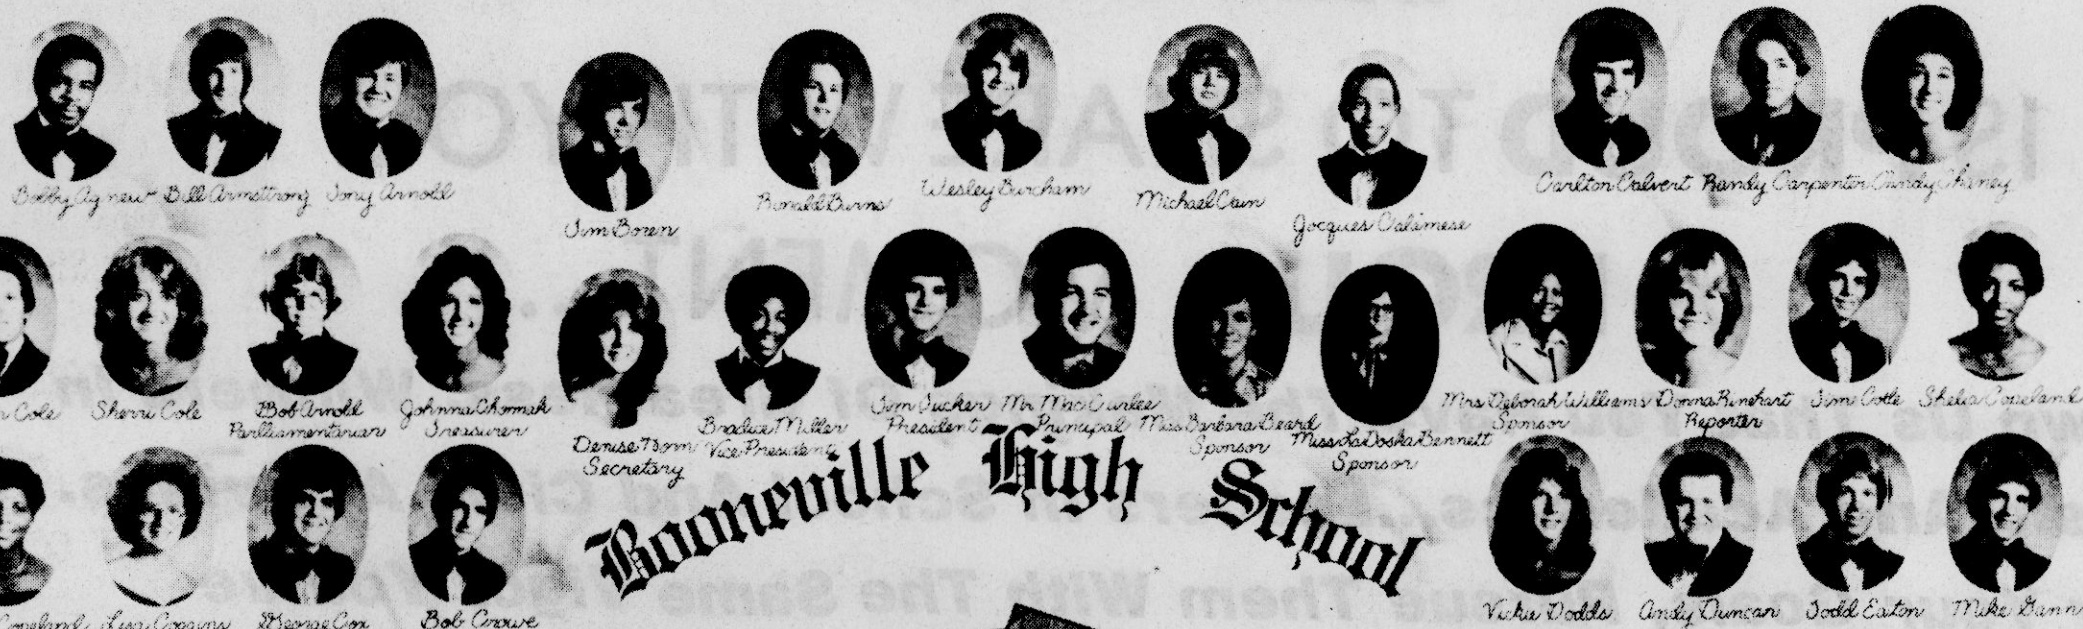 Bobby Agnew Bill Armsttrong Tony Arnold
Jim Boren
Ronald Burns
Wesley Burcham
Michael Cain
Jacques Calimese
Carlton Calvert Randy Carpenter Candy Chaney
Cole
Sherri Cole
Bob Arnold
Parlliamentarian
Johnna Chormak
Treasurer
Denise
Secretary
Bradice Miller
Vice President
Jim Tucker
President
Mr Mac Curlee
Principal
Miss Barbara Beard
Sponsor
Miss LaDoska Bennett
Sponsor
Mrs Deborah Williams
Sponsor
Donna Rinehart
Reporter
Jim Cotle
Shelia Copeland
Booneville High School
Copeland
Lisa Coggins
George Cox
Bob Crowe
Vickie Dodds
Andy Duncan
Todd Eaton
Mike Gann